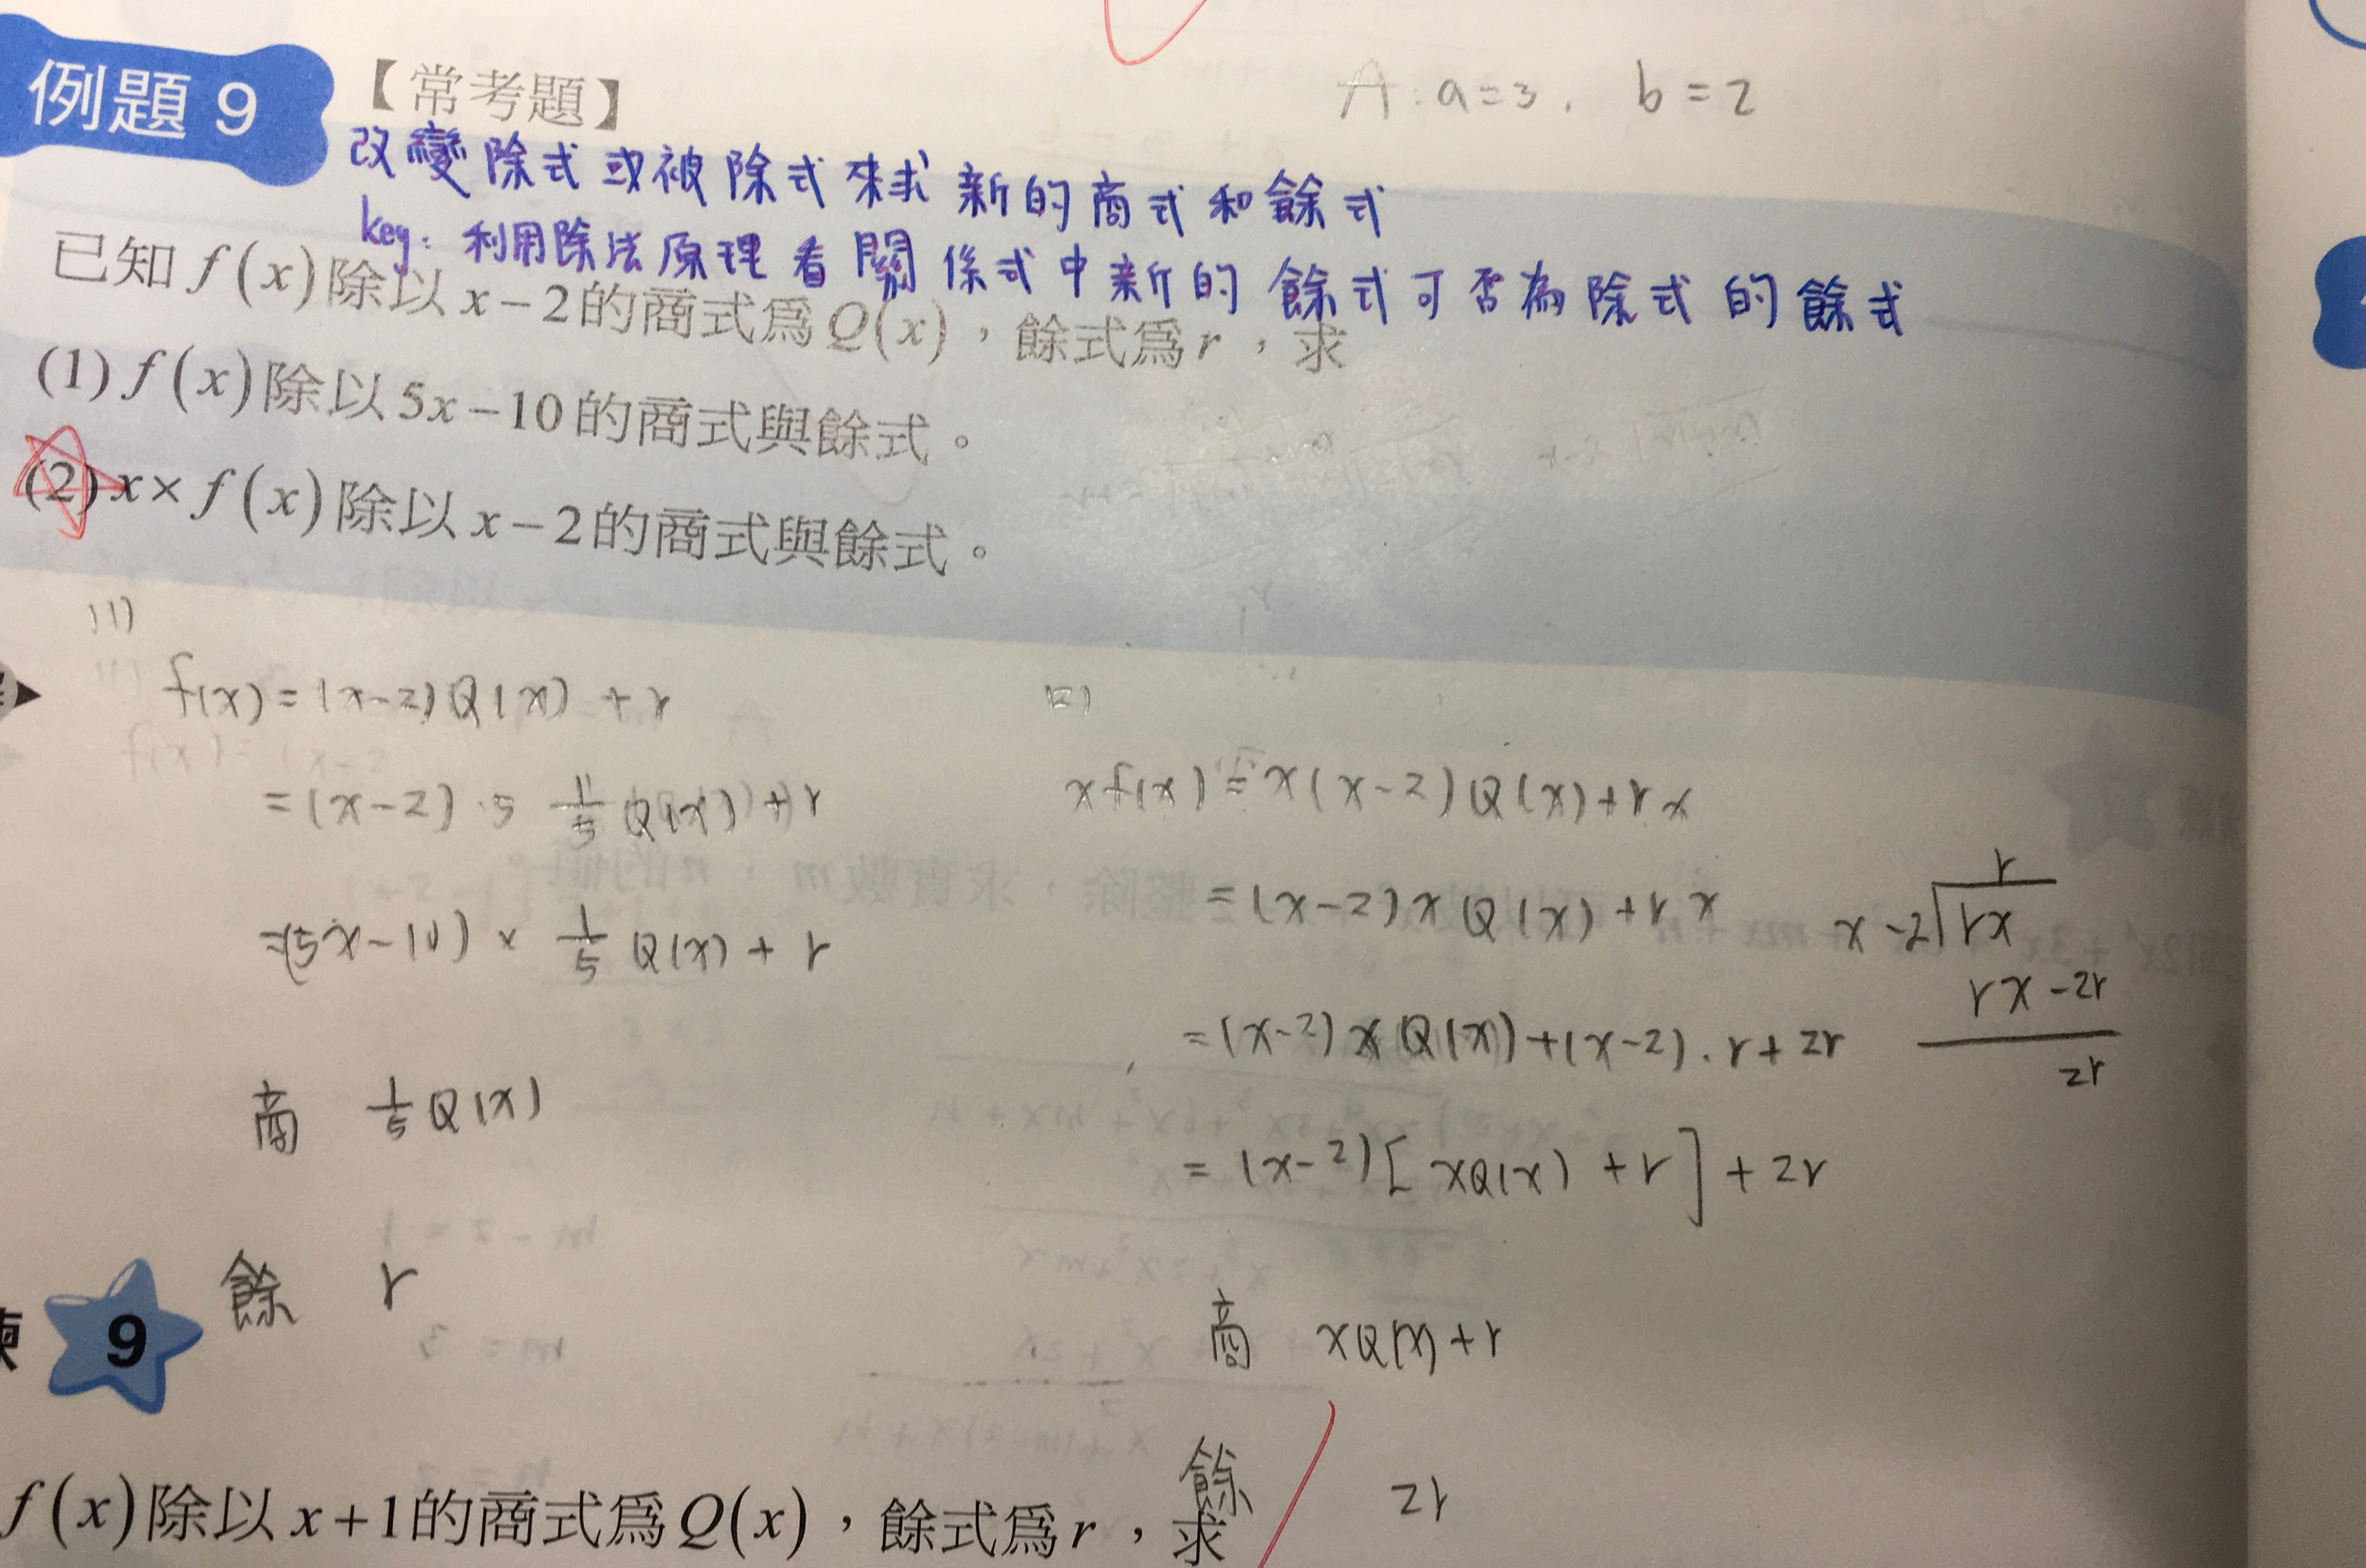 例題 9 【常考題】
A: a=3, b=2
改變除式或被除式來求新的商式和餘式
key: 利用除法原理看關係式中新的餘式可否為除式的餘式
已知 f(x) 除以 x-2 的商式為 Q(x)，餘式為 r，求
(1) f(x) 除以 5x-10 的商式與餘式。
(2) x× f(x) 除以 x-2 的商式與餘式。
(1)
f(x) = (x-2)Q(x) + r
= (x-2)·5 1/5 Q(x) + r
=(5x-10) × 1/5 Q(x) + r
商 1/5 Q(x)
餘 r
(2)
xf(x) = x(x-2)Q(x)+rx
= (x-2)xQ(x)+rx
= (x-2)xQ(x)+(x-2)·r+2r
= (x-2)[xQ(x)+r]+2r
商 xQ(x)+r
餘 2r
r
x-2 rx
rx-2r
2r
9
f(x) 除以 x+1 的商式為 Q(x)，餘式為 r，求